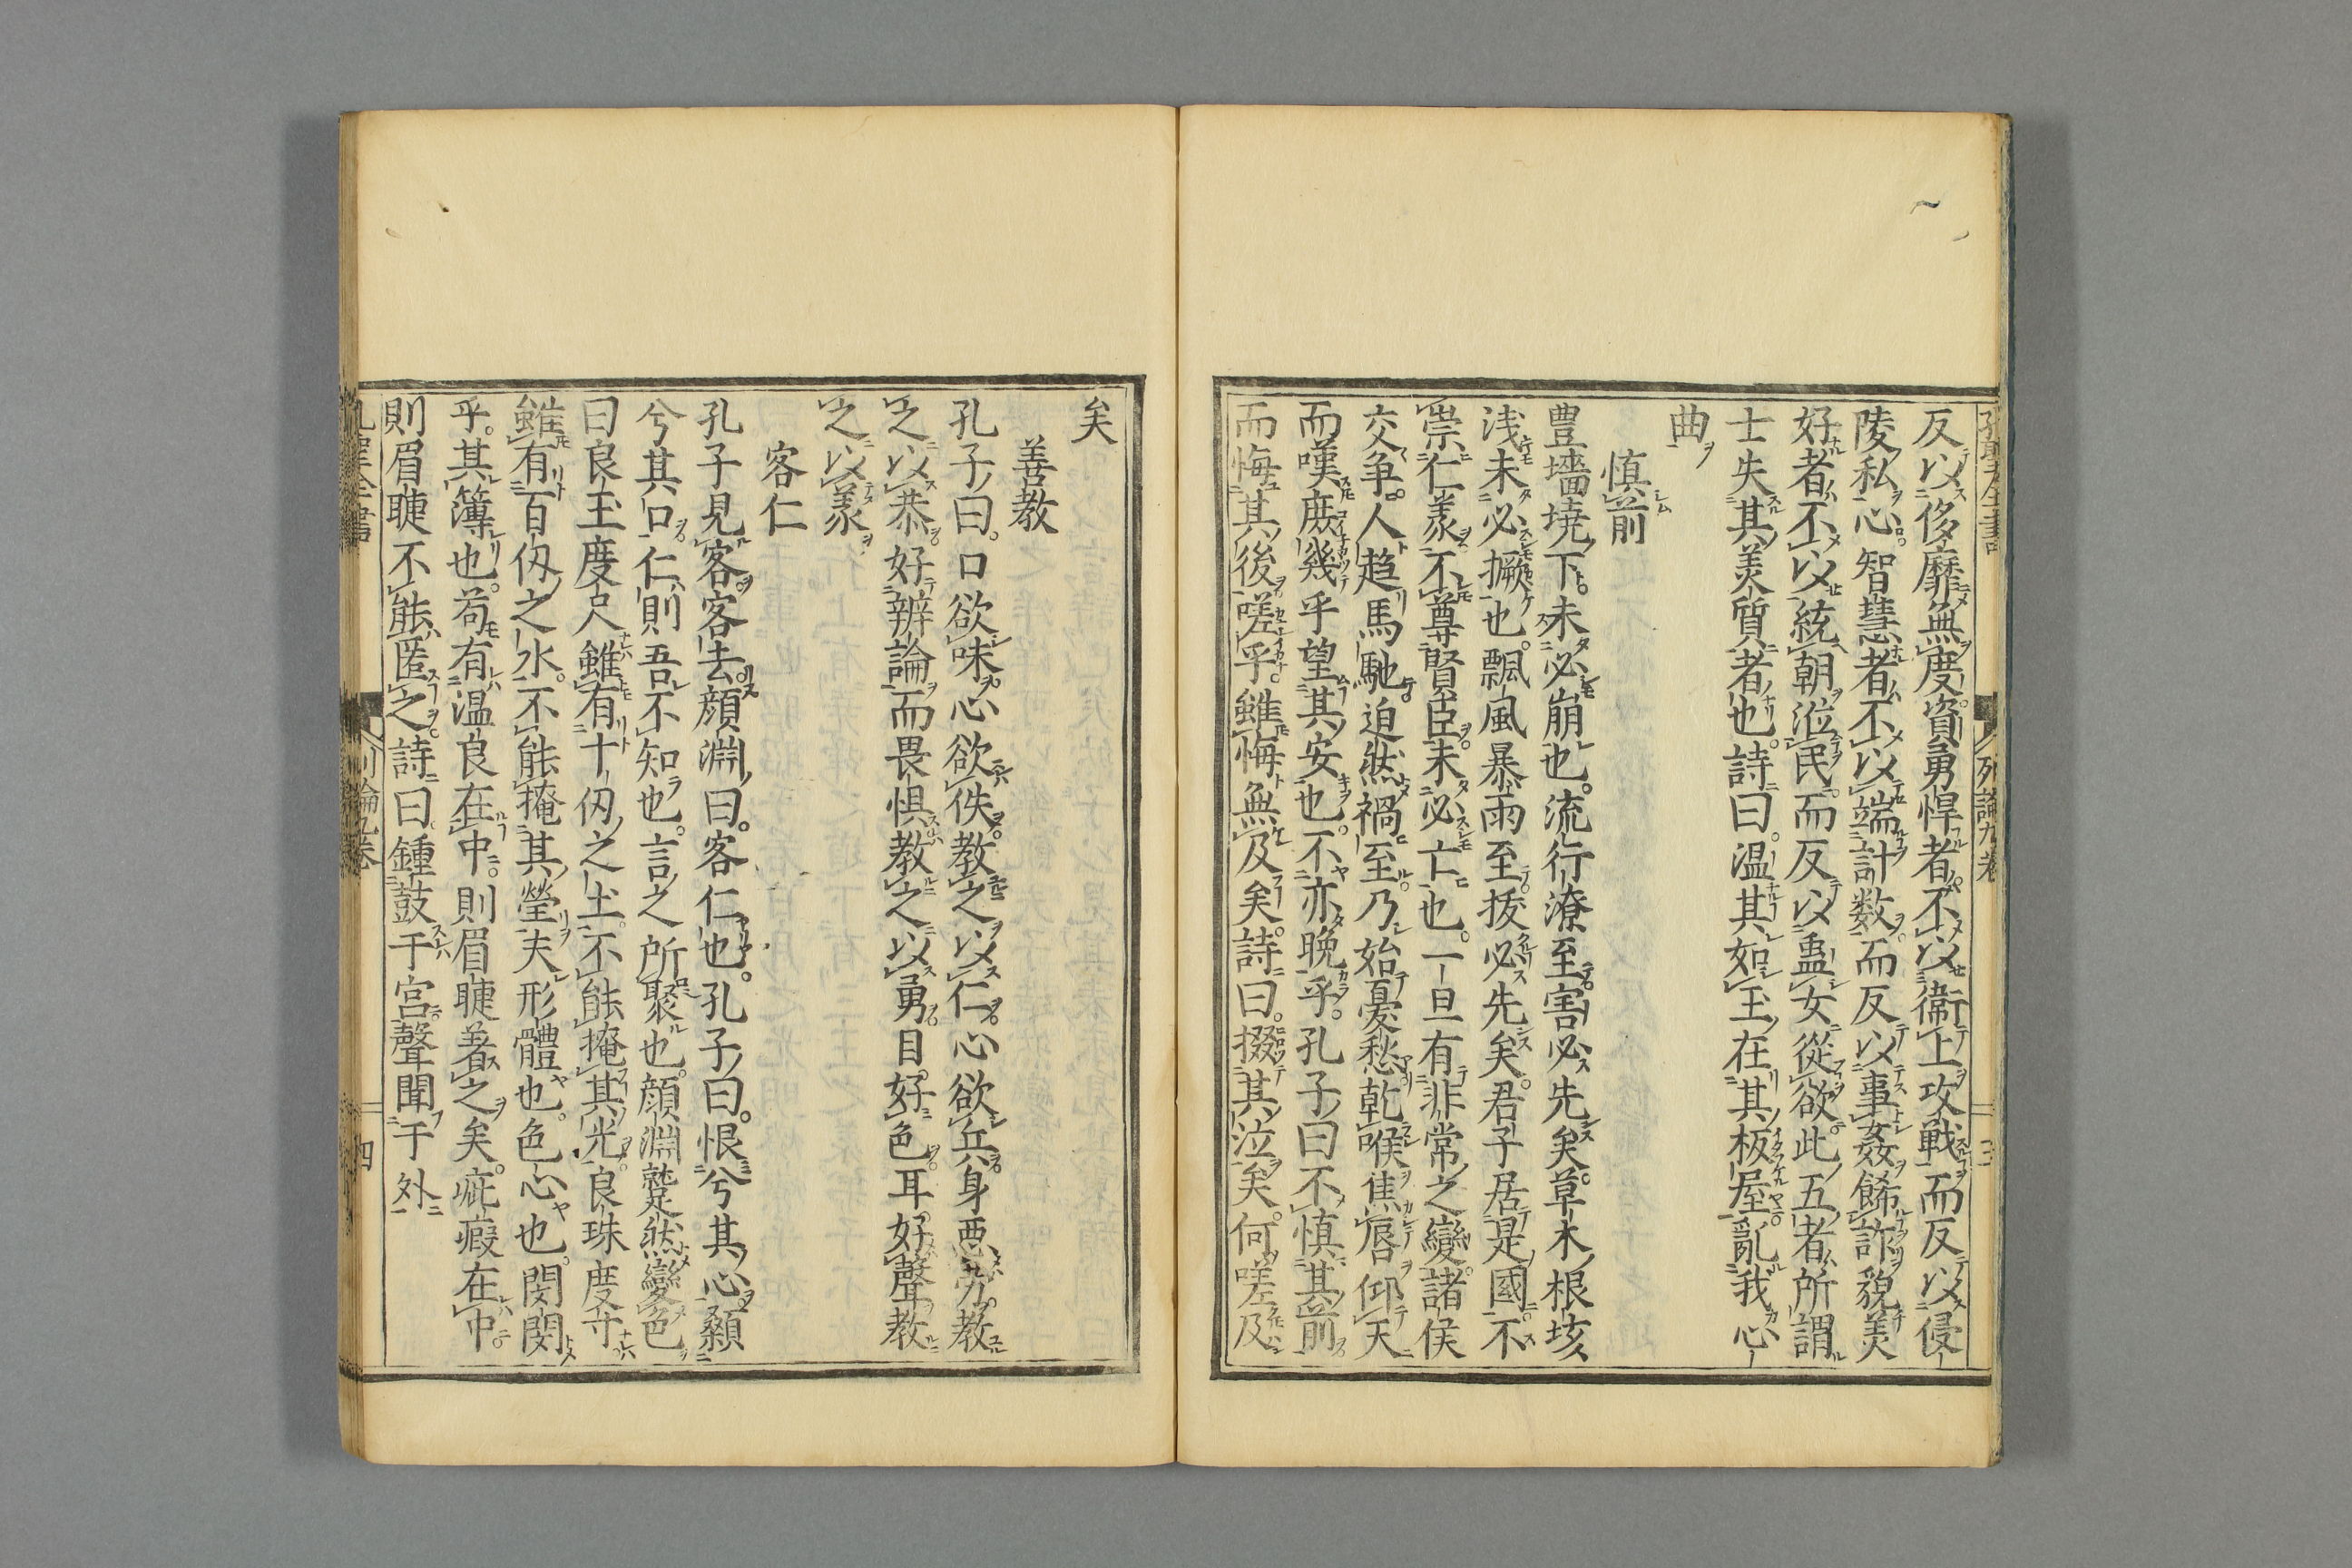 反以侈靡無度資勇悍者不以衞上攻戦而反以侵
陵私心智慧者不以端計数而反以事姦餙詐貌美
好者不以統朝涖民而反以蠱女從欲此五者所謂
士失其美質者也詩曰温其如玉在其板屋亂我心
曲
慎前
豊墻墝下未必崩也流行潦至害必先矣草木根垓
浅未必撅也飄風暴雨至抜必先矣君子居是國不
崇仁義不尊賢臣未必亡也一旦有非常之變諸侯
交争人趋馬馳迫然禍至乃始憂愁乾喉焦唇仰天
而嘆庶幾乎望其安也不亦晩乎孔子曰不慎其前
而悔其後嗟乎雖悔無及矣詩曰掇其泣矣何嗟及
矣
善教
孔子曰口欲味心欲佚教之以仁心欲兵身悪労教
之以恭好辨論而畏惧教之以勇目好色耳好聲教
之以義
客仁
孔子見客客去顔淵曰客仁也孔子曰恨兮其心顙
兮其口仁則吾不知也言之所聚也顔淵蹵然變色
曰良玉度尺雖有十仭之土不能掩其光良珠度寸
雖有百仭之水不能掩其瑩夫形體也色心也閔閔
乎其簿也苟有温良在中則眉睫着之矣疵瑕在中
則眉睫不能匿之詩曰鍾鼓于宮聲聞于外
四